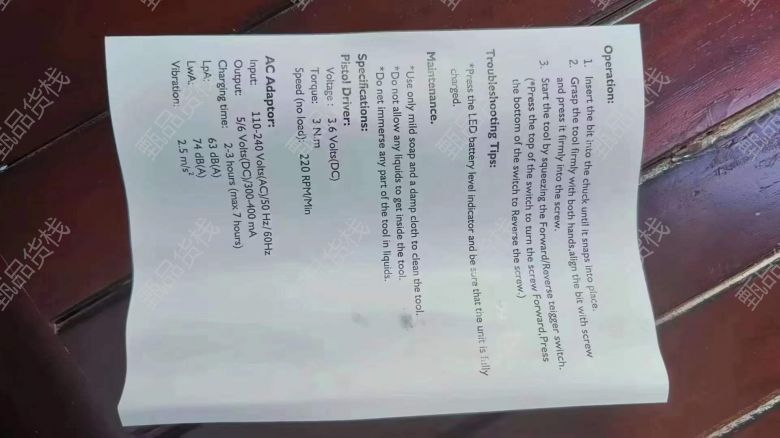 Operation:
1. Insert the bit into the chuck until it snaps into place.
2. Grasp the tool firmly with both hands,align the bit with screw
and press it firmly into the screw.
3. Start the tool by squeezing the Forward/Reverse teigger switch.
(*Press the top of the switch to turn the screw Forward,Press
the bottom of the switch to Reverse the screw.)
Troubleshooting Tips:
*Press the LED battery level indicator and be sure that the unit is fully
charged.
Maintenance.
*Use only mild soap and a damp cloth to clean the tool.
*Do not allow any liquids to get inside the tool.
*Do net immerse any part of the tool in liquids.
Specifications:
Pistol Driver:
Voltage : 3.6 Volts(DC)
Torque: 3 N.m
Speed (no load): 220 RPM/Min
AC Adaptor:
Input: 110-240 Volts(AC)/50 Hz/ 60Hz
Output: 5/6 Volts(DC)/300-400 mA
Charging time: 2-3 hours (max 7 hours)
LpA: 63 dB(A)
LwA: 74 dB(A)
Vibration: 2.5 m/s²
甄品货栈